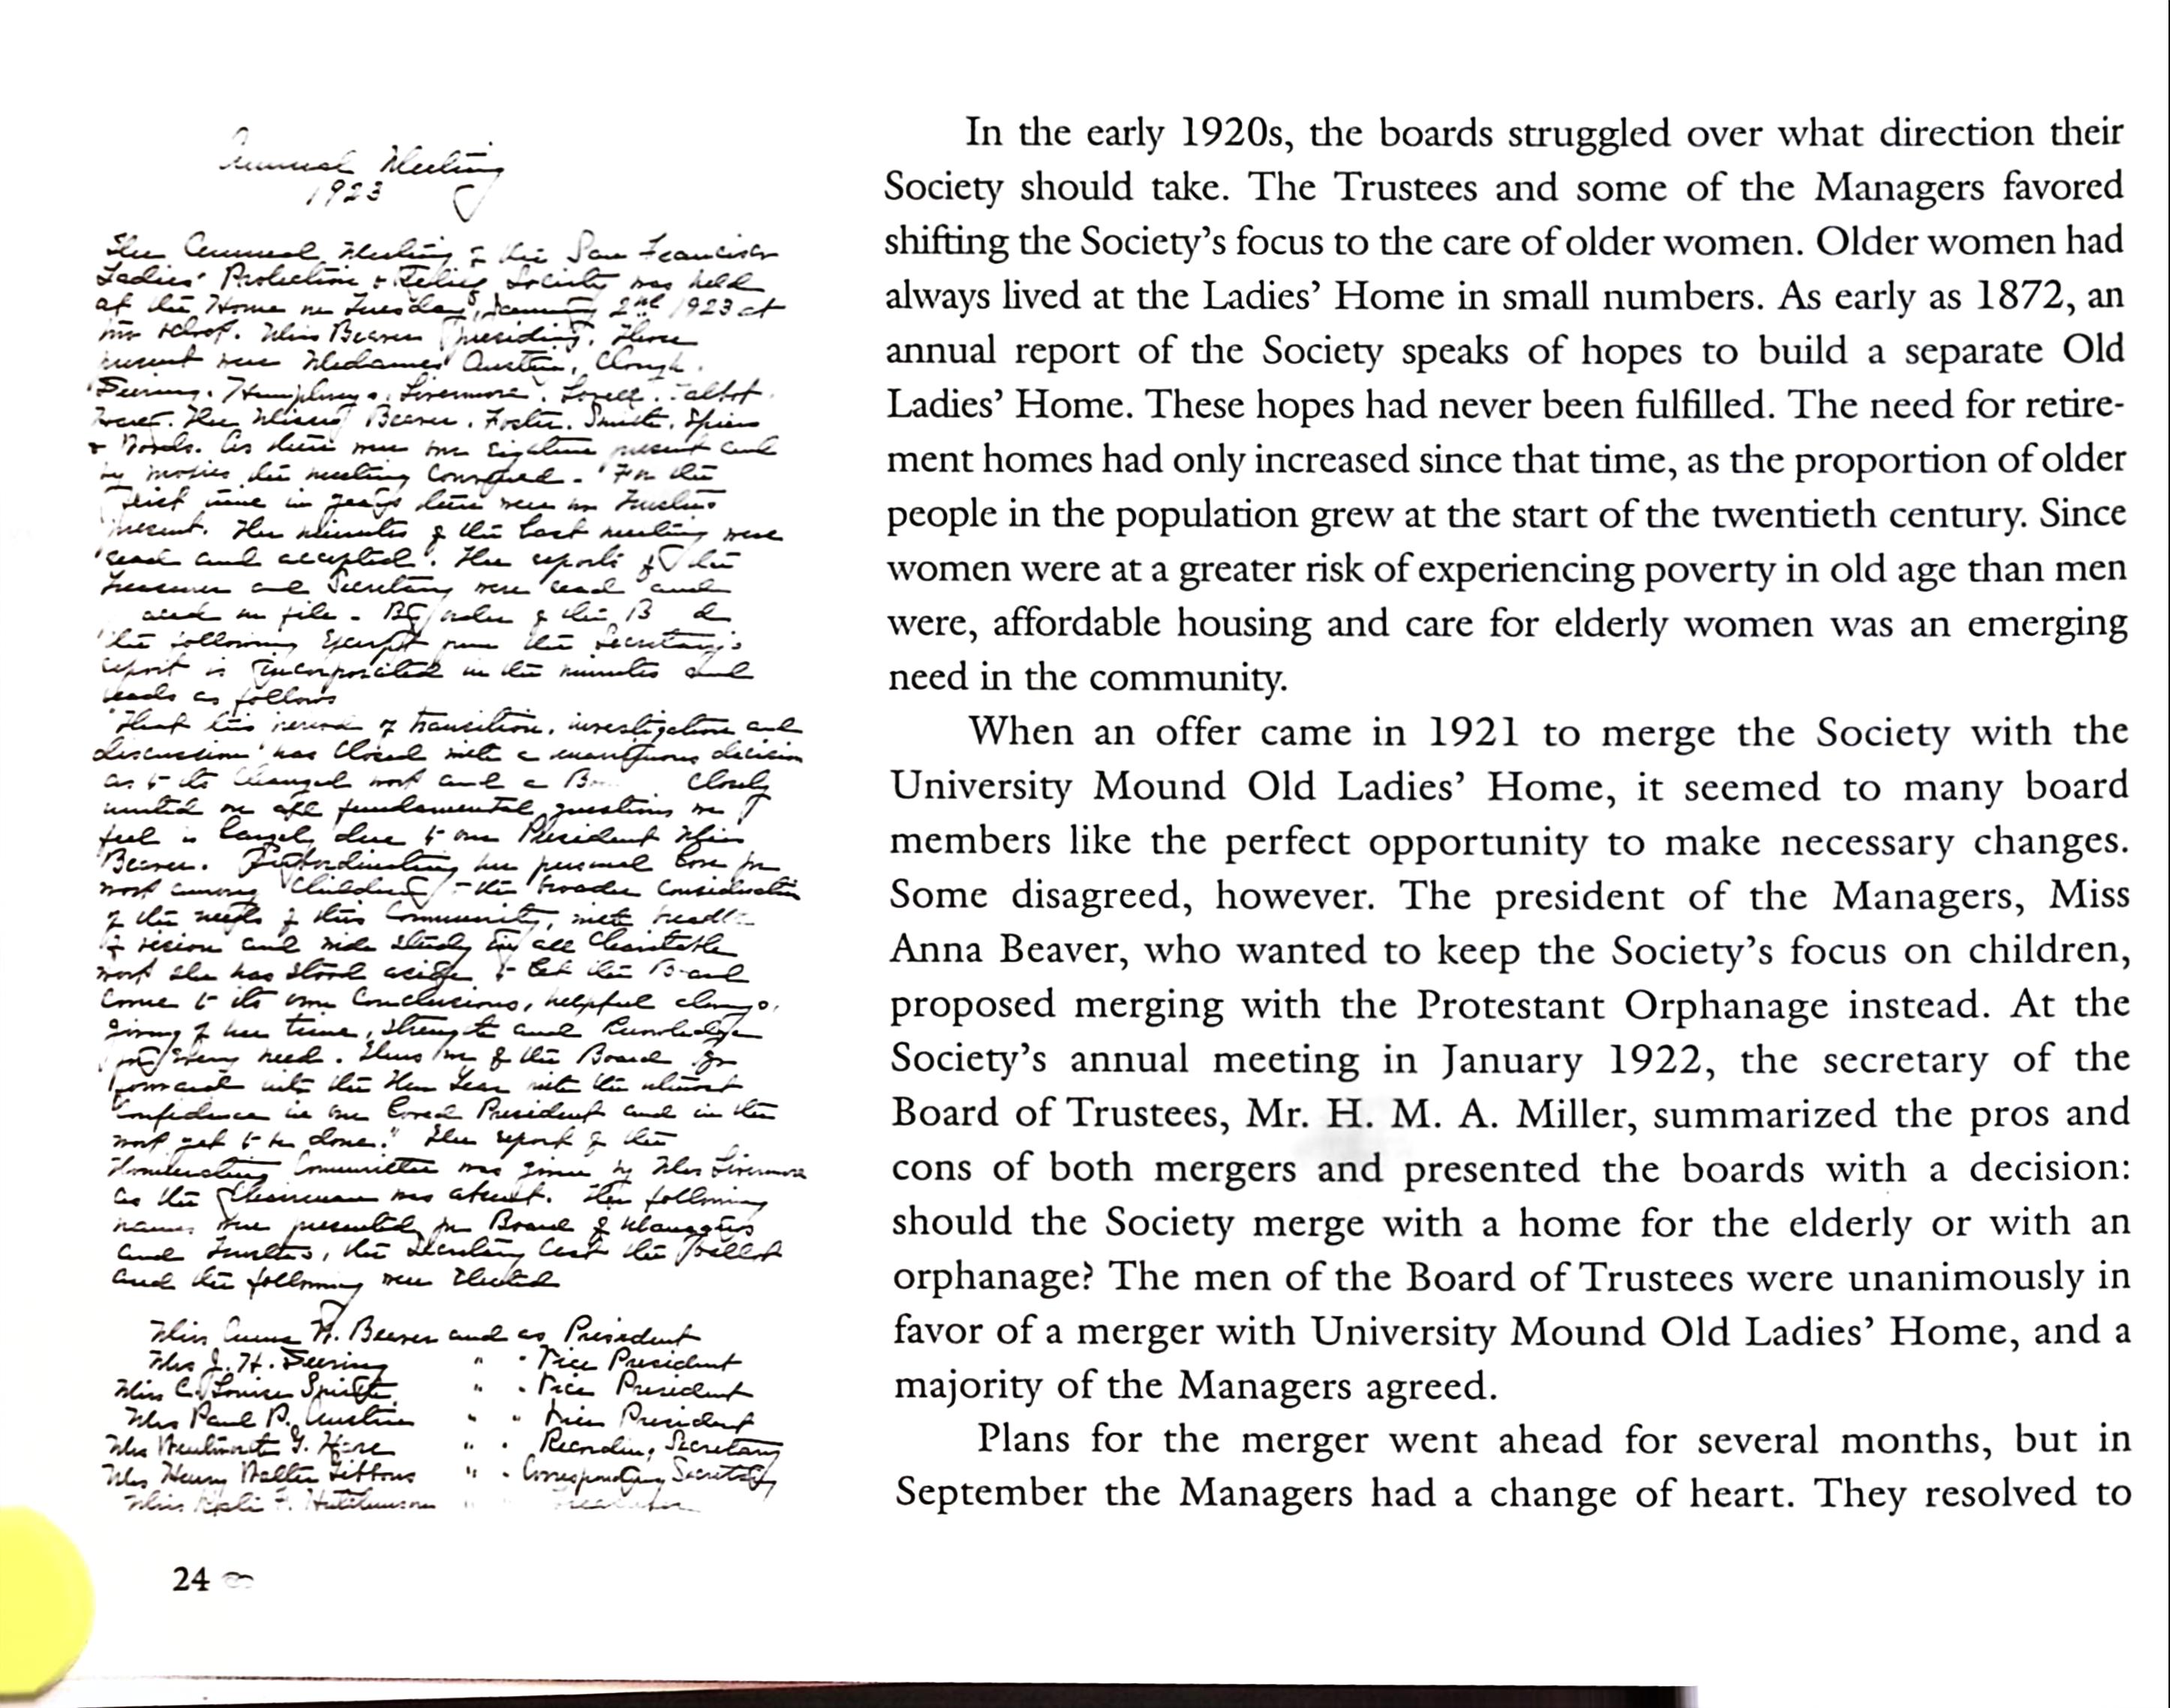 Annual Meeting
1923
The Annual Meeting of the San Francisco
Ladies' Protection & Relief Society was held
at the Home on Tuesday, January 2nd 1923 at
Miss Beaver presiding. Those
present were Mesdames Austin, Clough,
Deering, Humphreys, Livermore, Lovell, Talbot
The Misses Beaver, Foster, Smith,
As there were
the meeting For the
first time in years there were no Trustees
present. The minutes of the last meeting were
read and accepted. The reports of the
Treasurer and Secretary were read and
on file - By order of the B d
the following excerpt from the Secretary's
report is incorporated in the minutes and
reads as follows
"That this period of transition, investigation and
discussion has closed with a unanimous decision
as to its changed work and a closely
united on all fundamental questions we
feel is largely due to our President Miss
Beaver. Subordinating her personal love for
work among children to the broader consideration
of the needs of this community, with breadth
of vision and wide study in all charitable
work she has stood aside to let the Board
come to its own conclusions, helpful always,
giving of her time, strength and knowledge
every need. Thus we of the Board go
forward into the New Year with the utmost
confidence in our loved President and in the
work yet to be done." The report of the
Nominating Committee was given by Mrs Livermore
as the Chairman was absent. The following
names were presented for Board of Managers
and Trustees, the Secretary cast the ballot
and the following were elected
Miss Anna W. Beaver and as President
Mrs J. H. Deering " " Vice President
Miss C. Louise " " Vice President
Mrs Paul P. Austin " " Vice President
Mrs " " Recording Secretary
Mrs Henry Walter Gibbons " " Corresponding Secretary
Miss F. Hutchinson " Treasurer
24
In the early 1920s, the boards struggled over what direction their
Society should take. The Trustees and some of the Managers favored
shifting the Society's focus to the care of older women. Older women had
always lived at the Ladies' Home in small numbers. As early as 1872, an
annual report of the Society speaks of hopes to build a separate Old
Ladies' Home. These hopes had never been fulfilled. The need for retire-
ment homes had only increased since that time, as the proportion of older
people in the population grew at the start of the twentieth century. Since
women were at a greater risk of experiencing poverty in old age than men
were, affordable housing and care for elderly women was an emerging
need in the community.
When an offer came in 1921 to merge the Society with the
University Mound Old Ladies' Home, it seemed to many board
members like the perfect opportunity to make necessary changes.
Some disagreed, however. The president of the Managers, Miss
Anna Beaver, who wanted to keep the Society's focus on children,
proposed merging with the Protestant Orphanage instead. At the
Society's annual meeting in January 1922, the secretary of the
Board of Trustees, Mr. H. M. A. Miller, summarized the pros and
cons of both mergers and presented the boards with a decision:
should the Society merge with a home for the elderly or with an
orphanage? The men of the Board of Trustees were unanimously in
favor of a merger with University Mound Old Ladies' Home, and a
majority of the Managers agreed.
Plans for the merger went ahead for several months, but in
September the Managers had a change of heart. They resolved to